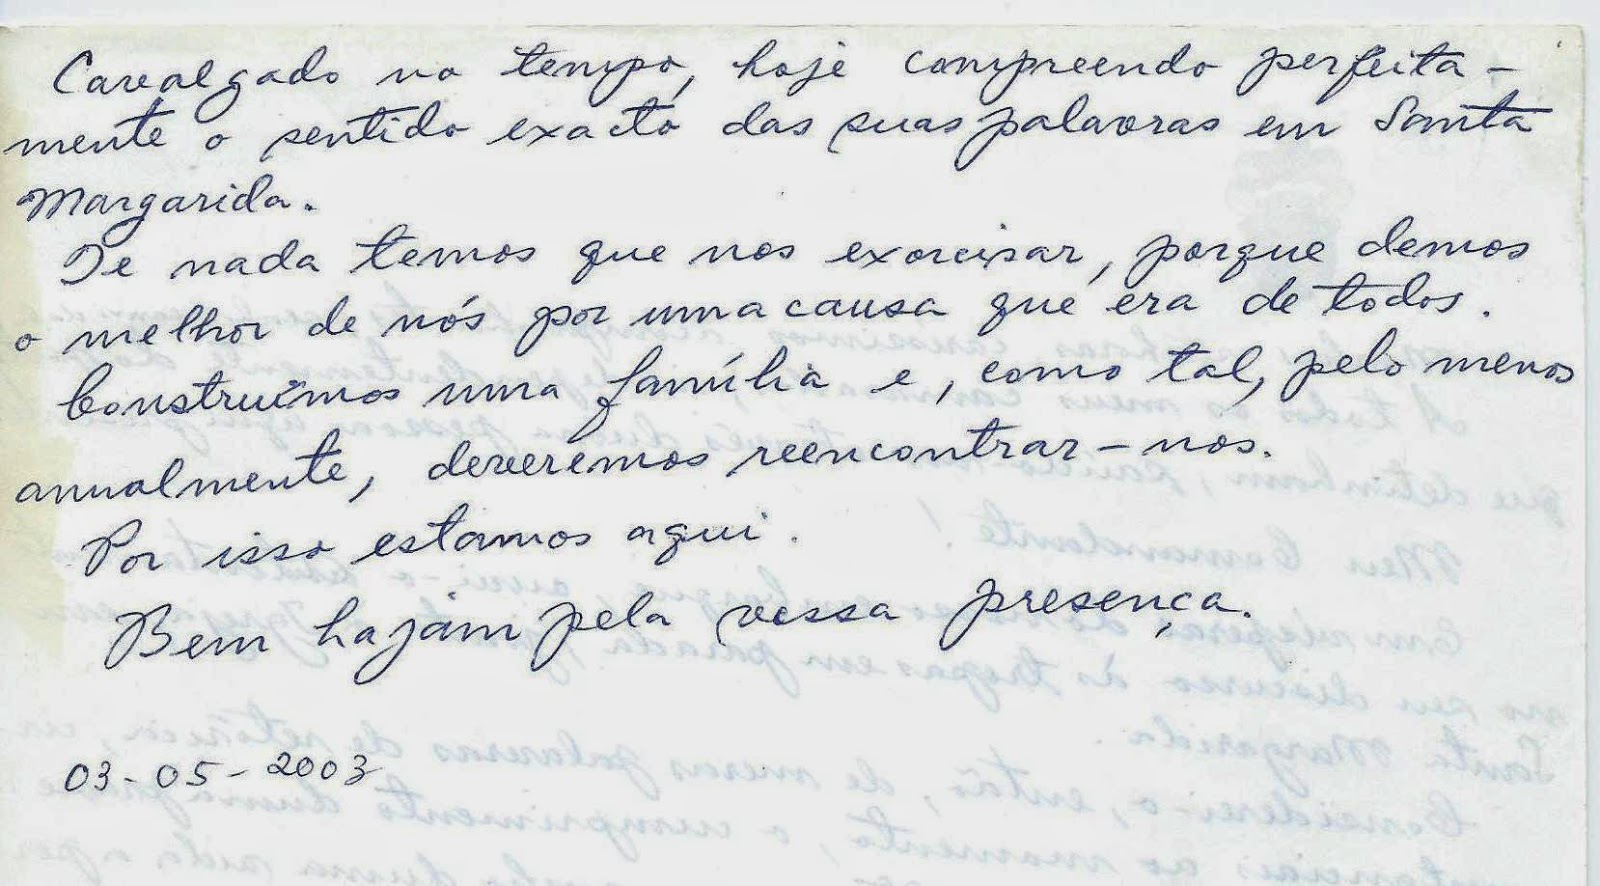 Cavalgado no tempo, hoje compreendo perfeita-
mente o sentido exacto das suas palavras em Santa
Margarida.
De nada temos que nos exorcisar, porque demos
o melhor de nós por uma causa que era de todos.
Construímos uma família e, como tal, pelo menos
anualmente, deveremos reencontrar-nos.
Por isso estamos aqui.
Bem hajam pela vossa presença.
03-05-2003